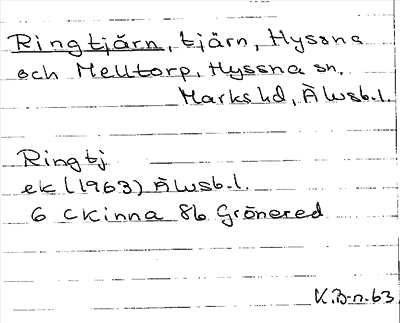 Ringtjärn, tjärn, Hyssna
och Melltorp, Hyssna sn,
Marks hd, Älvsb. l.
Ringtj
ek (1963) Älvsb. l.
6 C Kinna 8b Grönered
K.B-n. 63